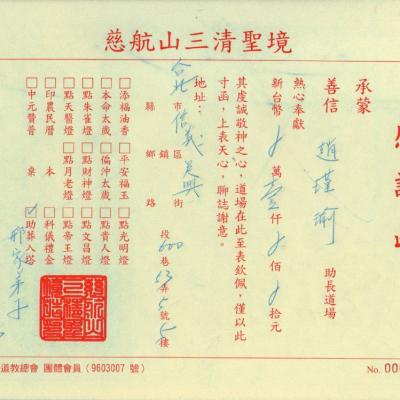 慈航山三清聖境
感謝
承蒙
善信 趙瑾瑜 助長道場
熱心奉獻
新台幣 萬壹仟 佰 拾元
其虔誠敬神之心，道場在此至表欽佩，僅以此
寸函，上表天心，聊誌謝意。
地址： 台北 縣市 信義 鄉鎮區 吳興 路街 段 600 巷 53 弄 5 號 5 樓
□添福油香 □平安福玉 □點光明燈
□本命太歲 □偏沖太歲 □點貴人燈
□點朱雀燈 □點財神燈 □點文昌燈
□點天醫燈 □點月老燈 □點帝王燈
□印農民曆 本 □科儀禮金
□中元贊普 桌 ☑助葬入塔
道教總會 團體會員（9603007 號）
No. 00